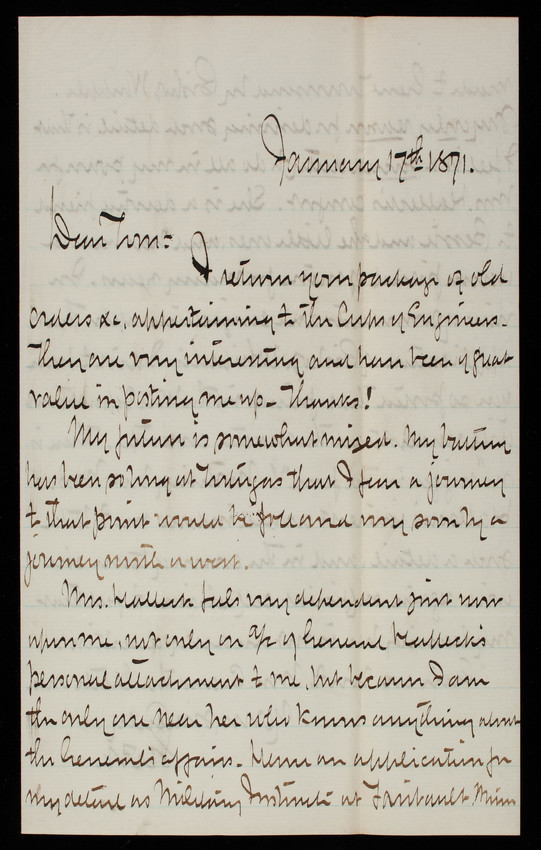 January 17th 1871.
Dear Tom:
I return your package of old
orders &c, appertaining to the Corps of Engineers.
They are very interesting and have been of great
value in posting me up. Thanks!
My future is somewhat mixed. My battery
has been so long at Tortugas that I fear a journey
to that point would be followed very soon by a
journey north or west.
Mrs. Halleck feels very dependent just now
upon me, not only on a/c of General Halleck's
personal attachment to me, but because I am
the only one near her who knows anything about
the General's affairs. Hence an application for
my detail as Military Instructor at Faribault, Minn